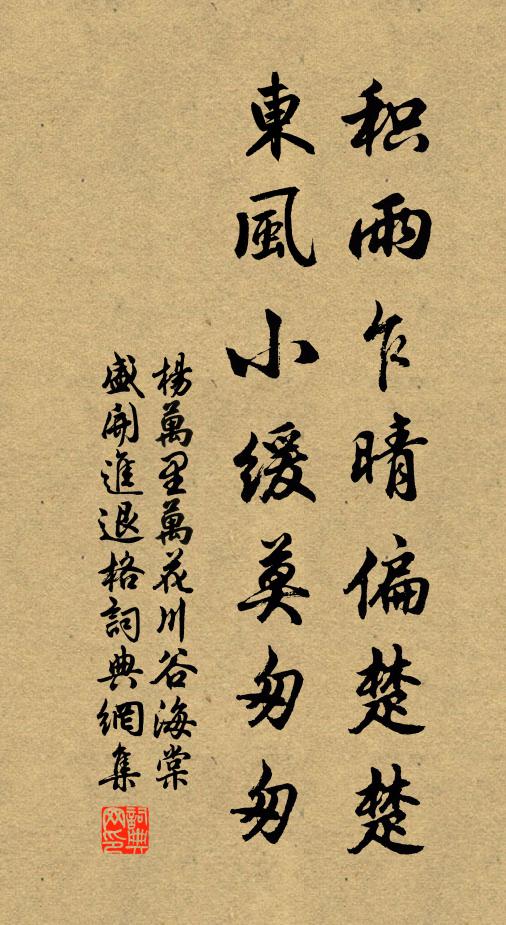 积雨乍晴偏楚楚
東風小緩莫匆匆
楊萬里萬花川谷海棠
盛開進退格詞典網集
詞典网印